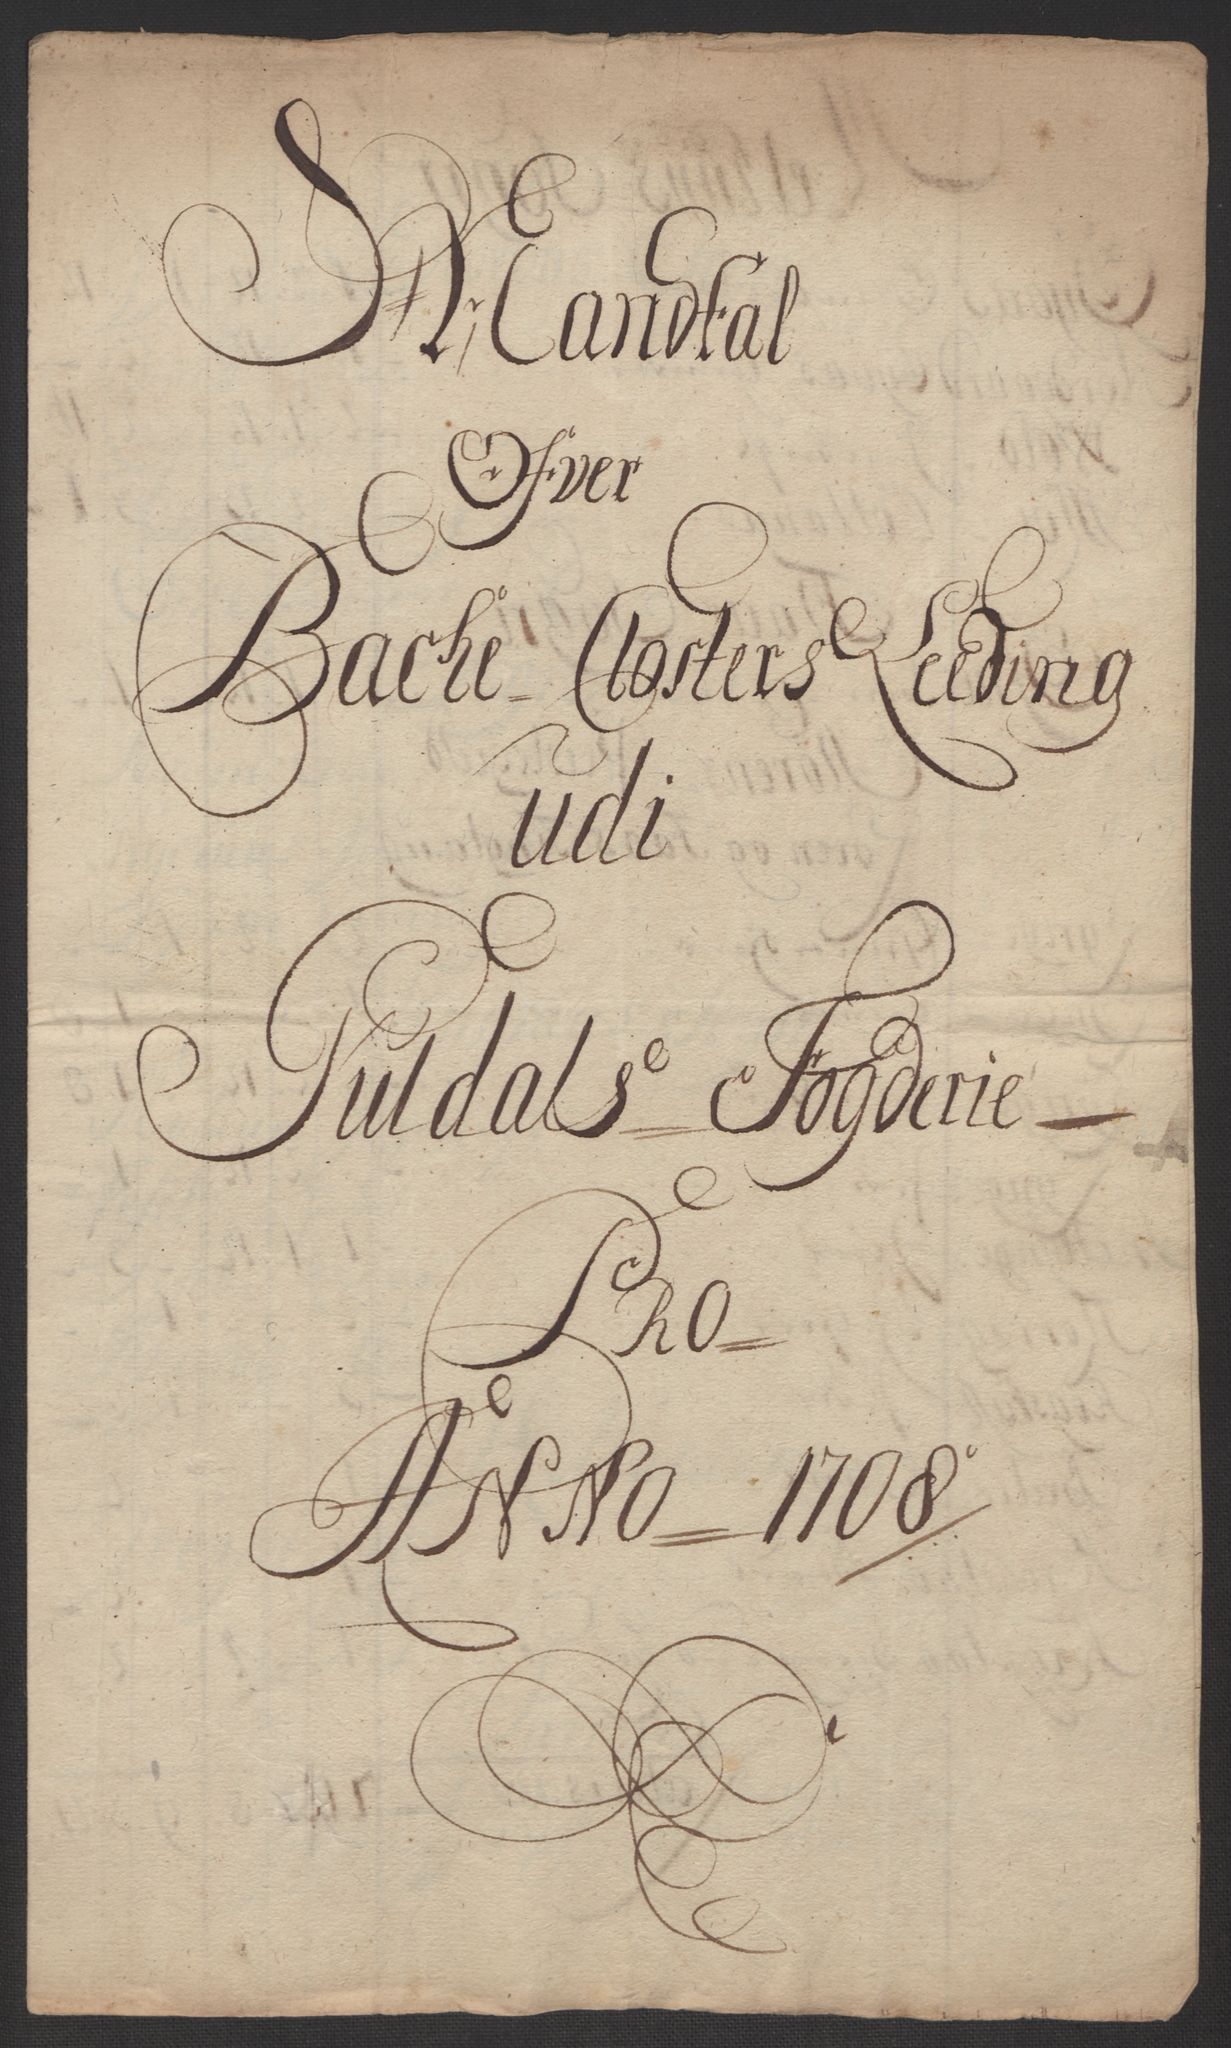 Mandtal
Ofver
Backe Closters Leeding
udi
Guldals Fogderie
Pro
ANNO 1708